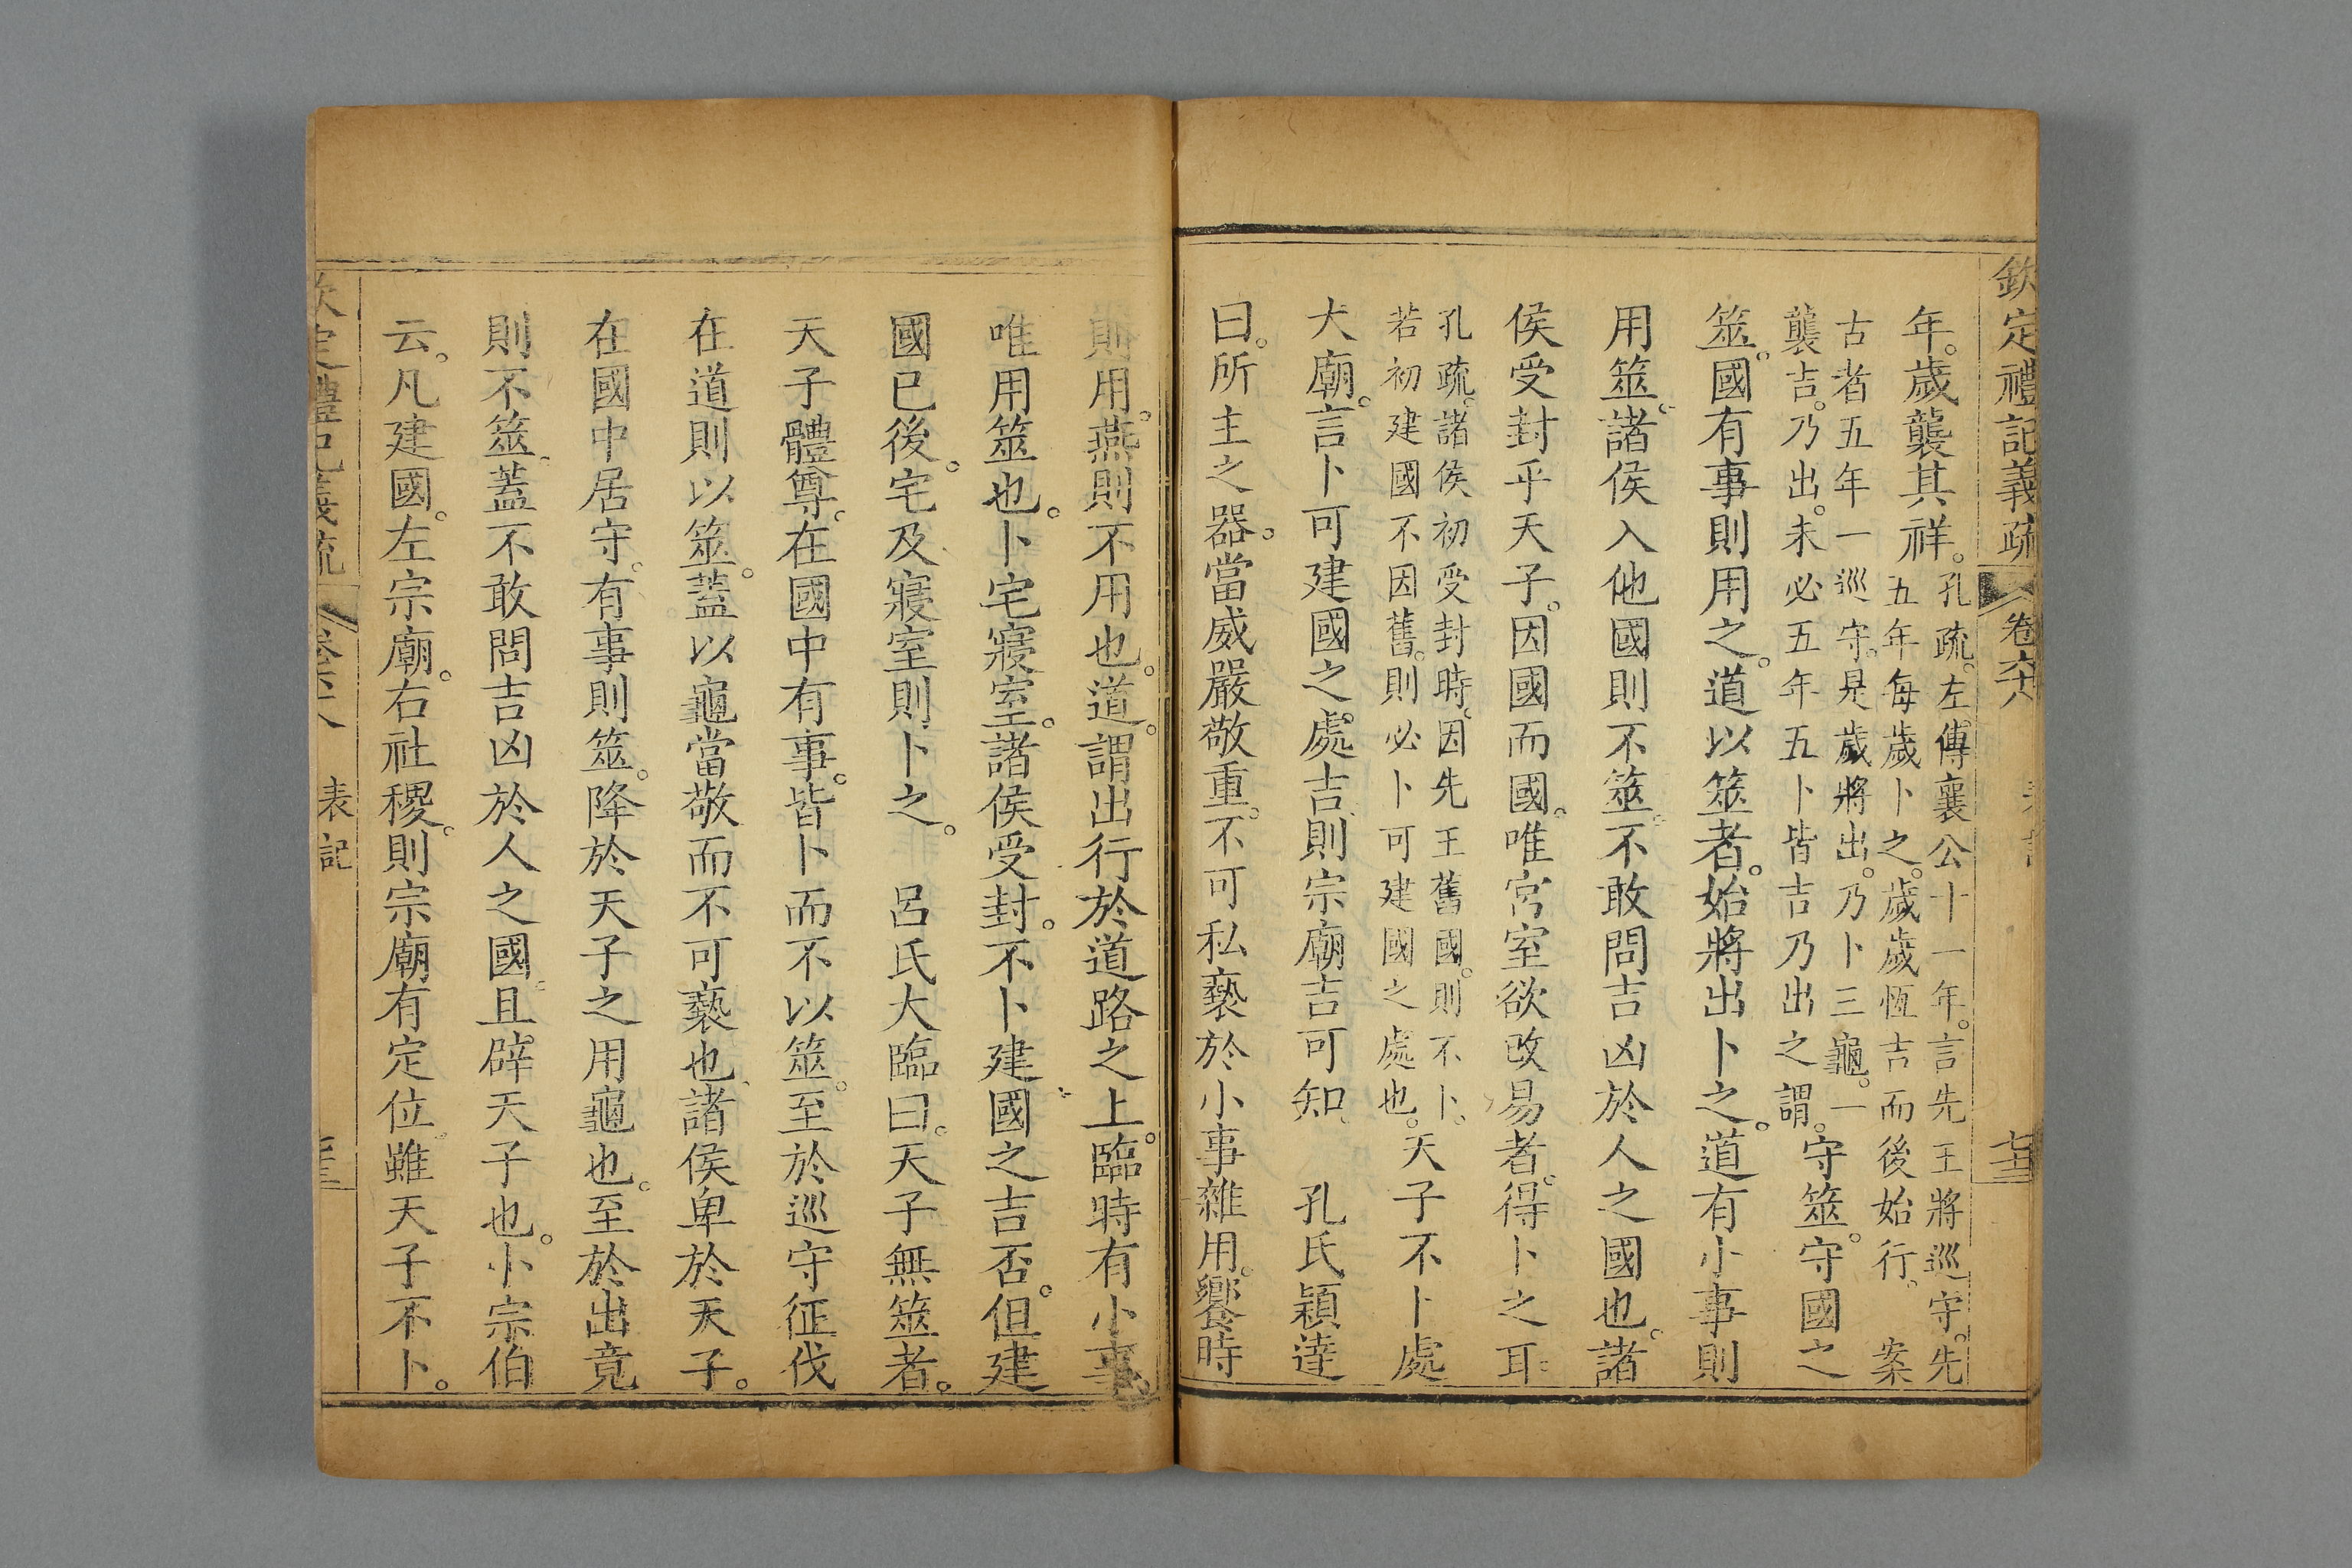 欽定禮記義疏 卷六十八
年。歲襲其祥。孔疏。左傳襄公十一年。言先王將巡守。先
五年每歲卜之。歲歲恆吉而後始行。 案
古者五年一巡守。是歲將出。乃卜三龜。一
襲吉。乃出。未必五年五卜皆吉乃出之謂。守筮。守國之
筮。國有事則用之。道以筮者。始將出卜之。道有小事則
用筮。諸侯入他國則不筮。不敢問吉凶於人之國也。諸
侯受封乎天子。因國而國。唯宮室欲改易者。得卜之耳。
孔疏。諸侯初受封時。因先王舊國。則不卜。
若初建國不因舊。則必卜可建國之處也。天子不卜處
大廟。言卜可建國之處。吉則宗廟吉可知。 孔氏穎達
曰。所主之器。當威嚴敬重。不可私褻於小事雜用。饗時
則用。燕則不用也。道。謂出行於道路之上。臨時有小事
唯用筮也。卜宅寢室。諸侯受封。不卜建國之吉否。但建
國已後。宅及寢室則卜之。 呂氏大臨曰。天子無筮者。
天子體尊。在國中有事。皆卜而不以筮。至於巡守征伐
在道則以筮。蓋以龜當敬而不可褻也。諸侯卑於天子。
在國中居守。有事則筮。降於天子之用龜也。至於出竟
則不筮。蓋不敢問吉凶於人之國。且辟天子也。小宗伯
云。凡建國。左宗廟。右社稷。則宗廟有定位。雖天子不卜。
表記